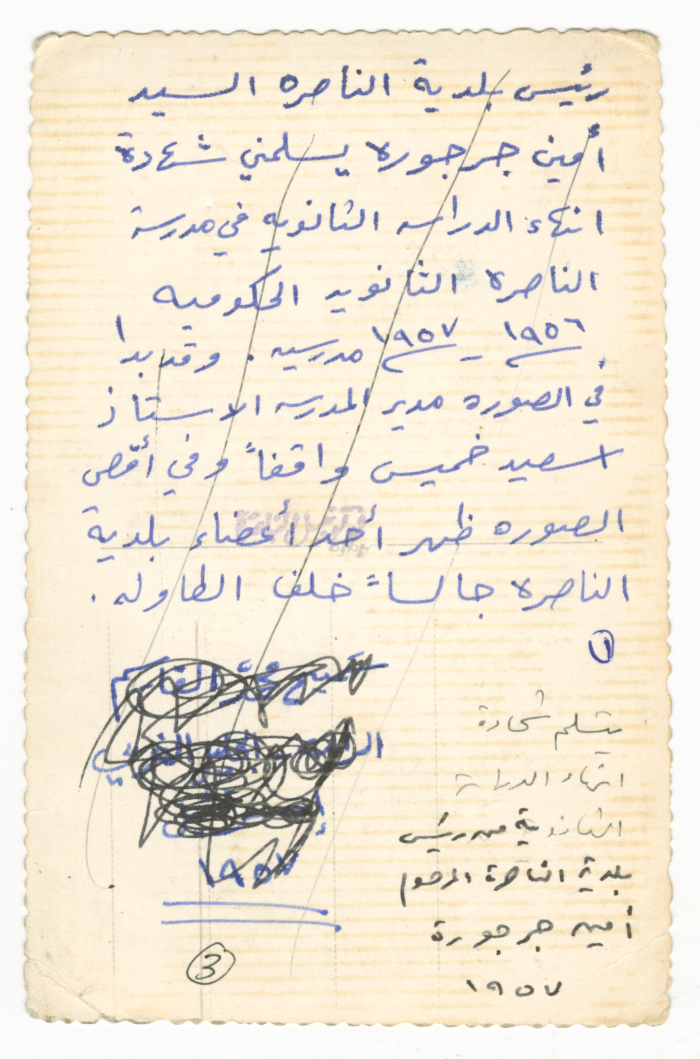 رئيس بلدية الناصره السيد
أمين جرجوره يسلمني شهادة
انهاء الدراسه الثانويه في مدرسة
الناصرة الثانويه الحكوميه
١٩٥٦ - ١٩٥٧ مدرسيه. وقد بدا
في الصوره مدير المدرسه الاستاذ
اسعيد خميس واقفاً وفي أقصى
الصوره ظهر أحد أعضاء بلدية
الناصرة جالساً خلف الطاوله.
١
سميح محمد القاسم
١٩٥٧
3
يتسلم شهادة
انهاء الدراسة
الثانوية من رئيس
بلدية الناصرة المرحوم
أمين جرجورة
١٩٥٧